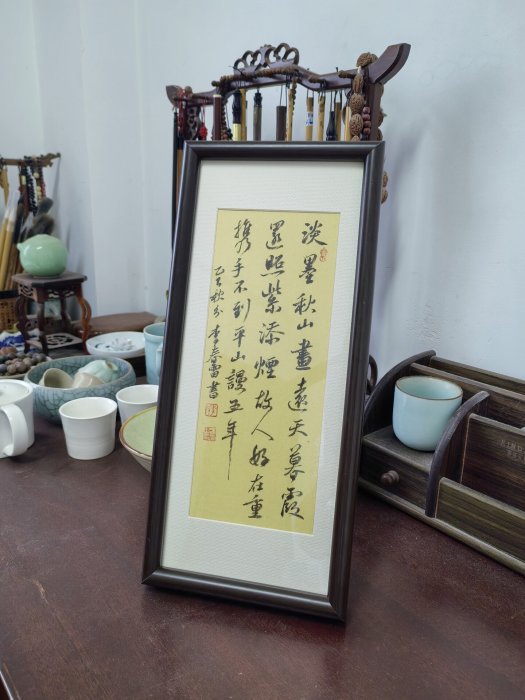 淡墨秋山畫遠天暮霞
還照紫添煙故人好在重
携手不到平山謾五年
乙巳秋分李春雷書